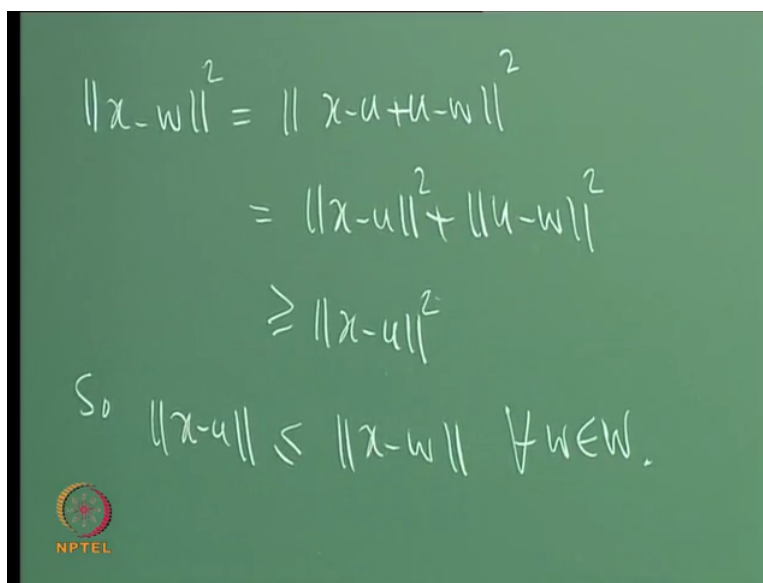 ||x-w||² = || x-u+u-w||²
= ||x-u||² + ||u-w||²
≥ ||x-u||²
So ||x-u|| ≤ ||x-w|| ∀ w∈W.
NPTEL